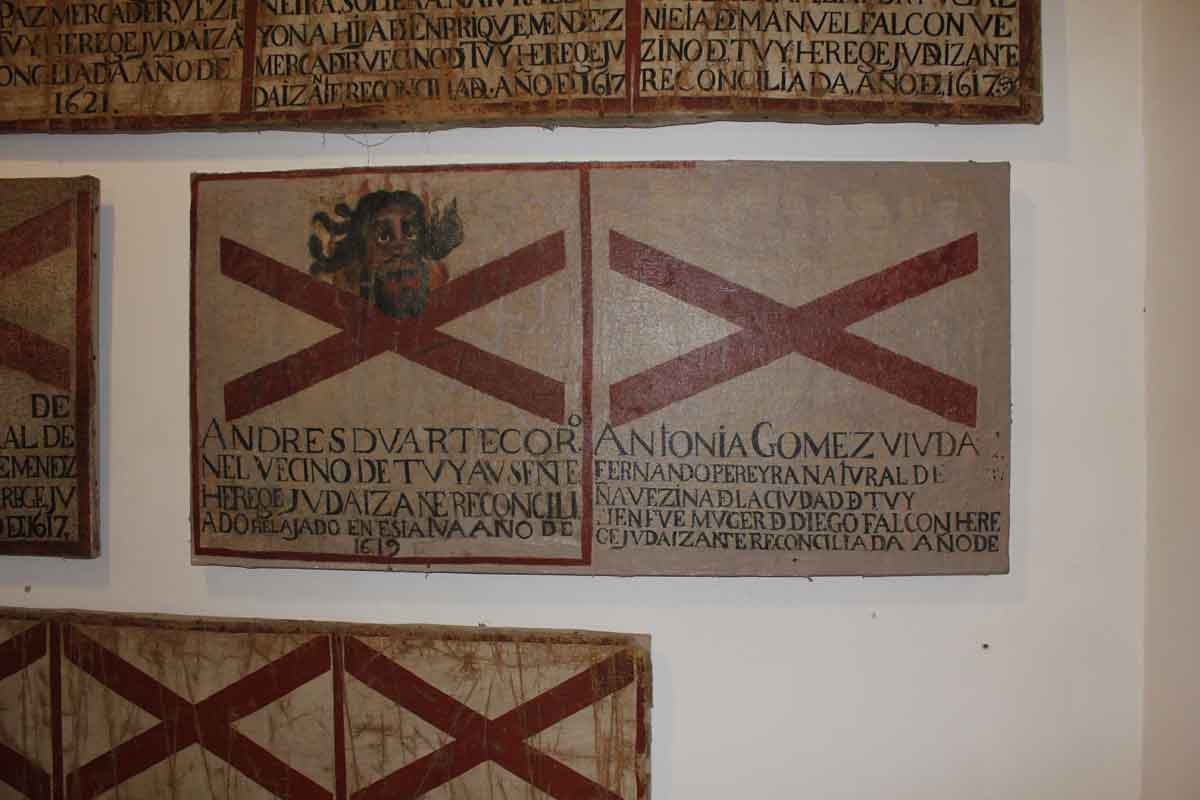 PAZ MERCADER, VEZI
TVY HEREQE JVDAIZA
ONCILIADA AÑO DE
1621.
YONA HIJA DENRRIQVE MENDEZ
MERCADR VECINO D TVY HEREQE JV
DAIZAÑTE RECONCILIAD. AÑO D 1617
NIETA D MANVEL FALCON VE
ZINO D. TVY. HEREQE JVDIZANTE
RECONCILIADA, AÑO D. 1617.
DE
RAL DE
EMENDZ
REQE JV
O D. 1617.
ANDRES DVARTE COR.º
NEL VECINO DE TVY AVSENTE
HEREQE JVDAIZANTE RECONCILI
ADO RELAJADO EN ESTATVA AÑO DE
1619
ANTONIA GOMEZ VIVDA
FERNANDO PEREYRA NATVRAL DE
ÑA VEZINA D LA CIVDAD D TVY
IEN FVE MVGER D DIEGO FALCON HERE
GE JVDAIZANTE RECONCILIADA AÑO DE